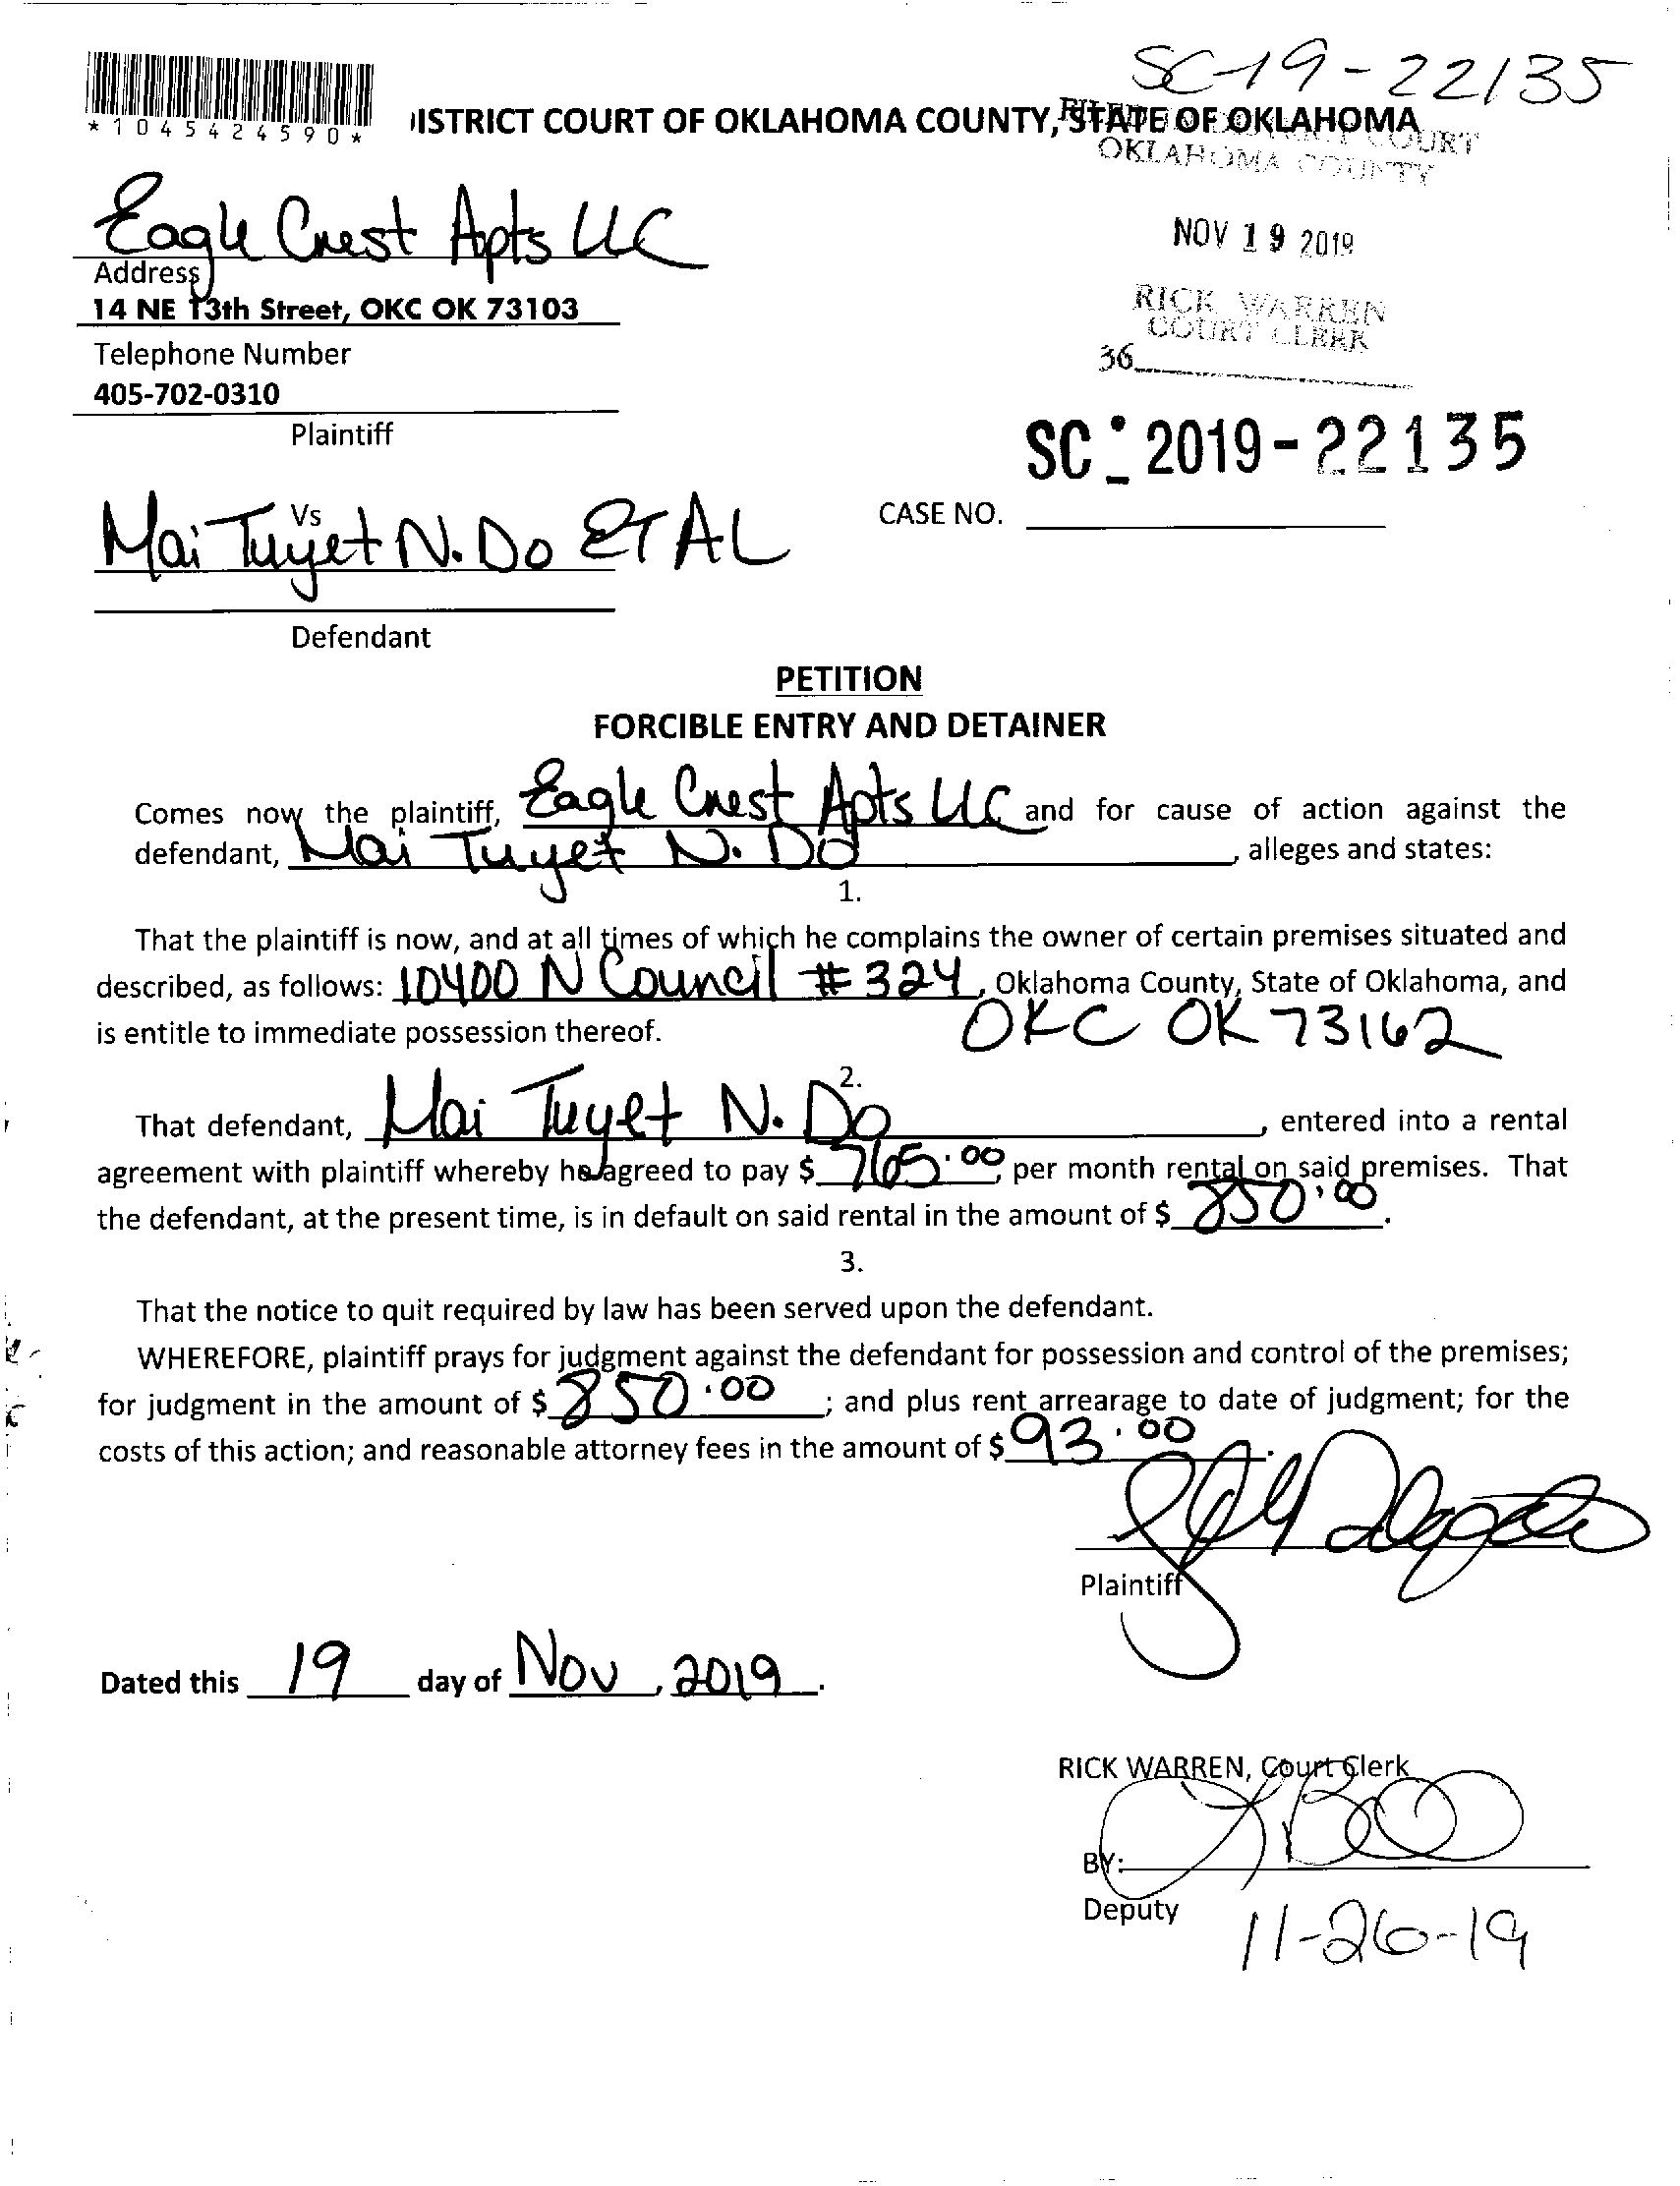 SC-19-22135
*1045424590*
ISTRICT COURT OF OKLAHOMA COUNTY, STATE OF OKLAHOMA
FILED IN DISTRICT COURT
OKLAHOMA COUNTY
Eagle Crest Apts LLC
NOV 19 2019
Address
14 NE 13th Street, OKC OK 73103
RICK WARREN
COURT CLERK
Telephone Number
36
405-702-0310
Plaintiff
SC-2019-22135
Vs
CASE NO.
Mai Tuyet N. Do ET AL
Defendant
PETITION
FORCIBLE ENTRY AND DETAINER
Comes now the plaintiff, Eagle Crest Apts LLC and for cause of action against the
defendant, Mai Tuyet N. Do, alleges and states:
1.
That the plaintiff is now, and at all times of which he complains the owner of certain premises situated and
described, as follows: 10400 N Council #324, Oklahoma County, State of Oklahoma, and
is entitle to immediate possession thereof. OKC OK 73162
2.
That defendant, Mai Tuyet N. Do, entered into a rental
agreement with plaintiff whereby he agreed to pay $ 765.00, per month rental on said premises. That
the defendant, at the present time, is in default on said rental in the amount of $ 850.00.
3.
That the notice to quit required by law has been served upon the defendant.
WHEREFORE, plaintiff prays for judgment against the defendant for possession and control of the premises;
for judgment in the amount of $ 850.00; and plus rent arrearage to date of judgment; for the
costs of this action; and reasonable attorney fees in the amount of $ 93.00.
Plaintiff
Dated this 19 day of Nov, 2019.
RICK WARREN, Court Clerk
BY:
Deputy
11-26-19